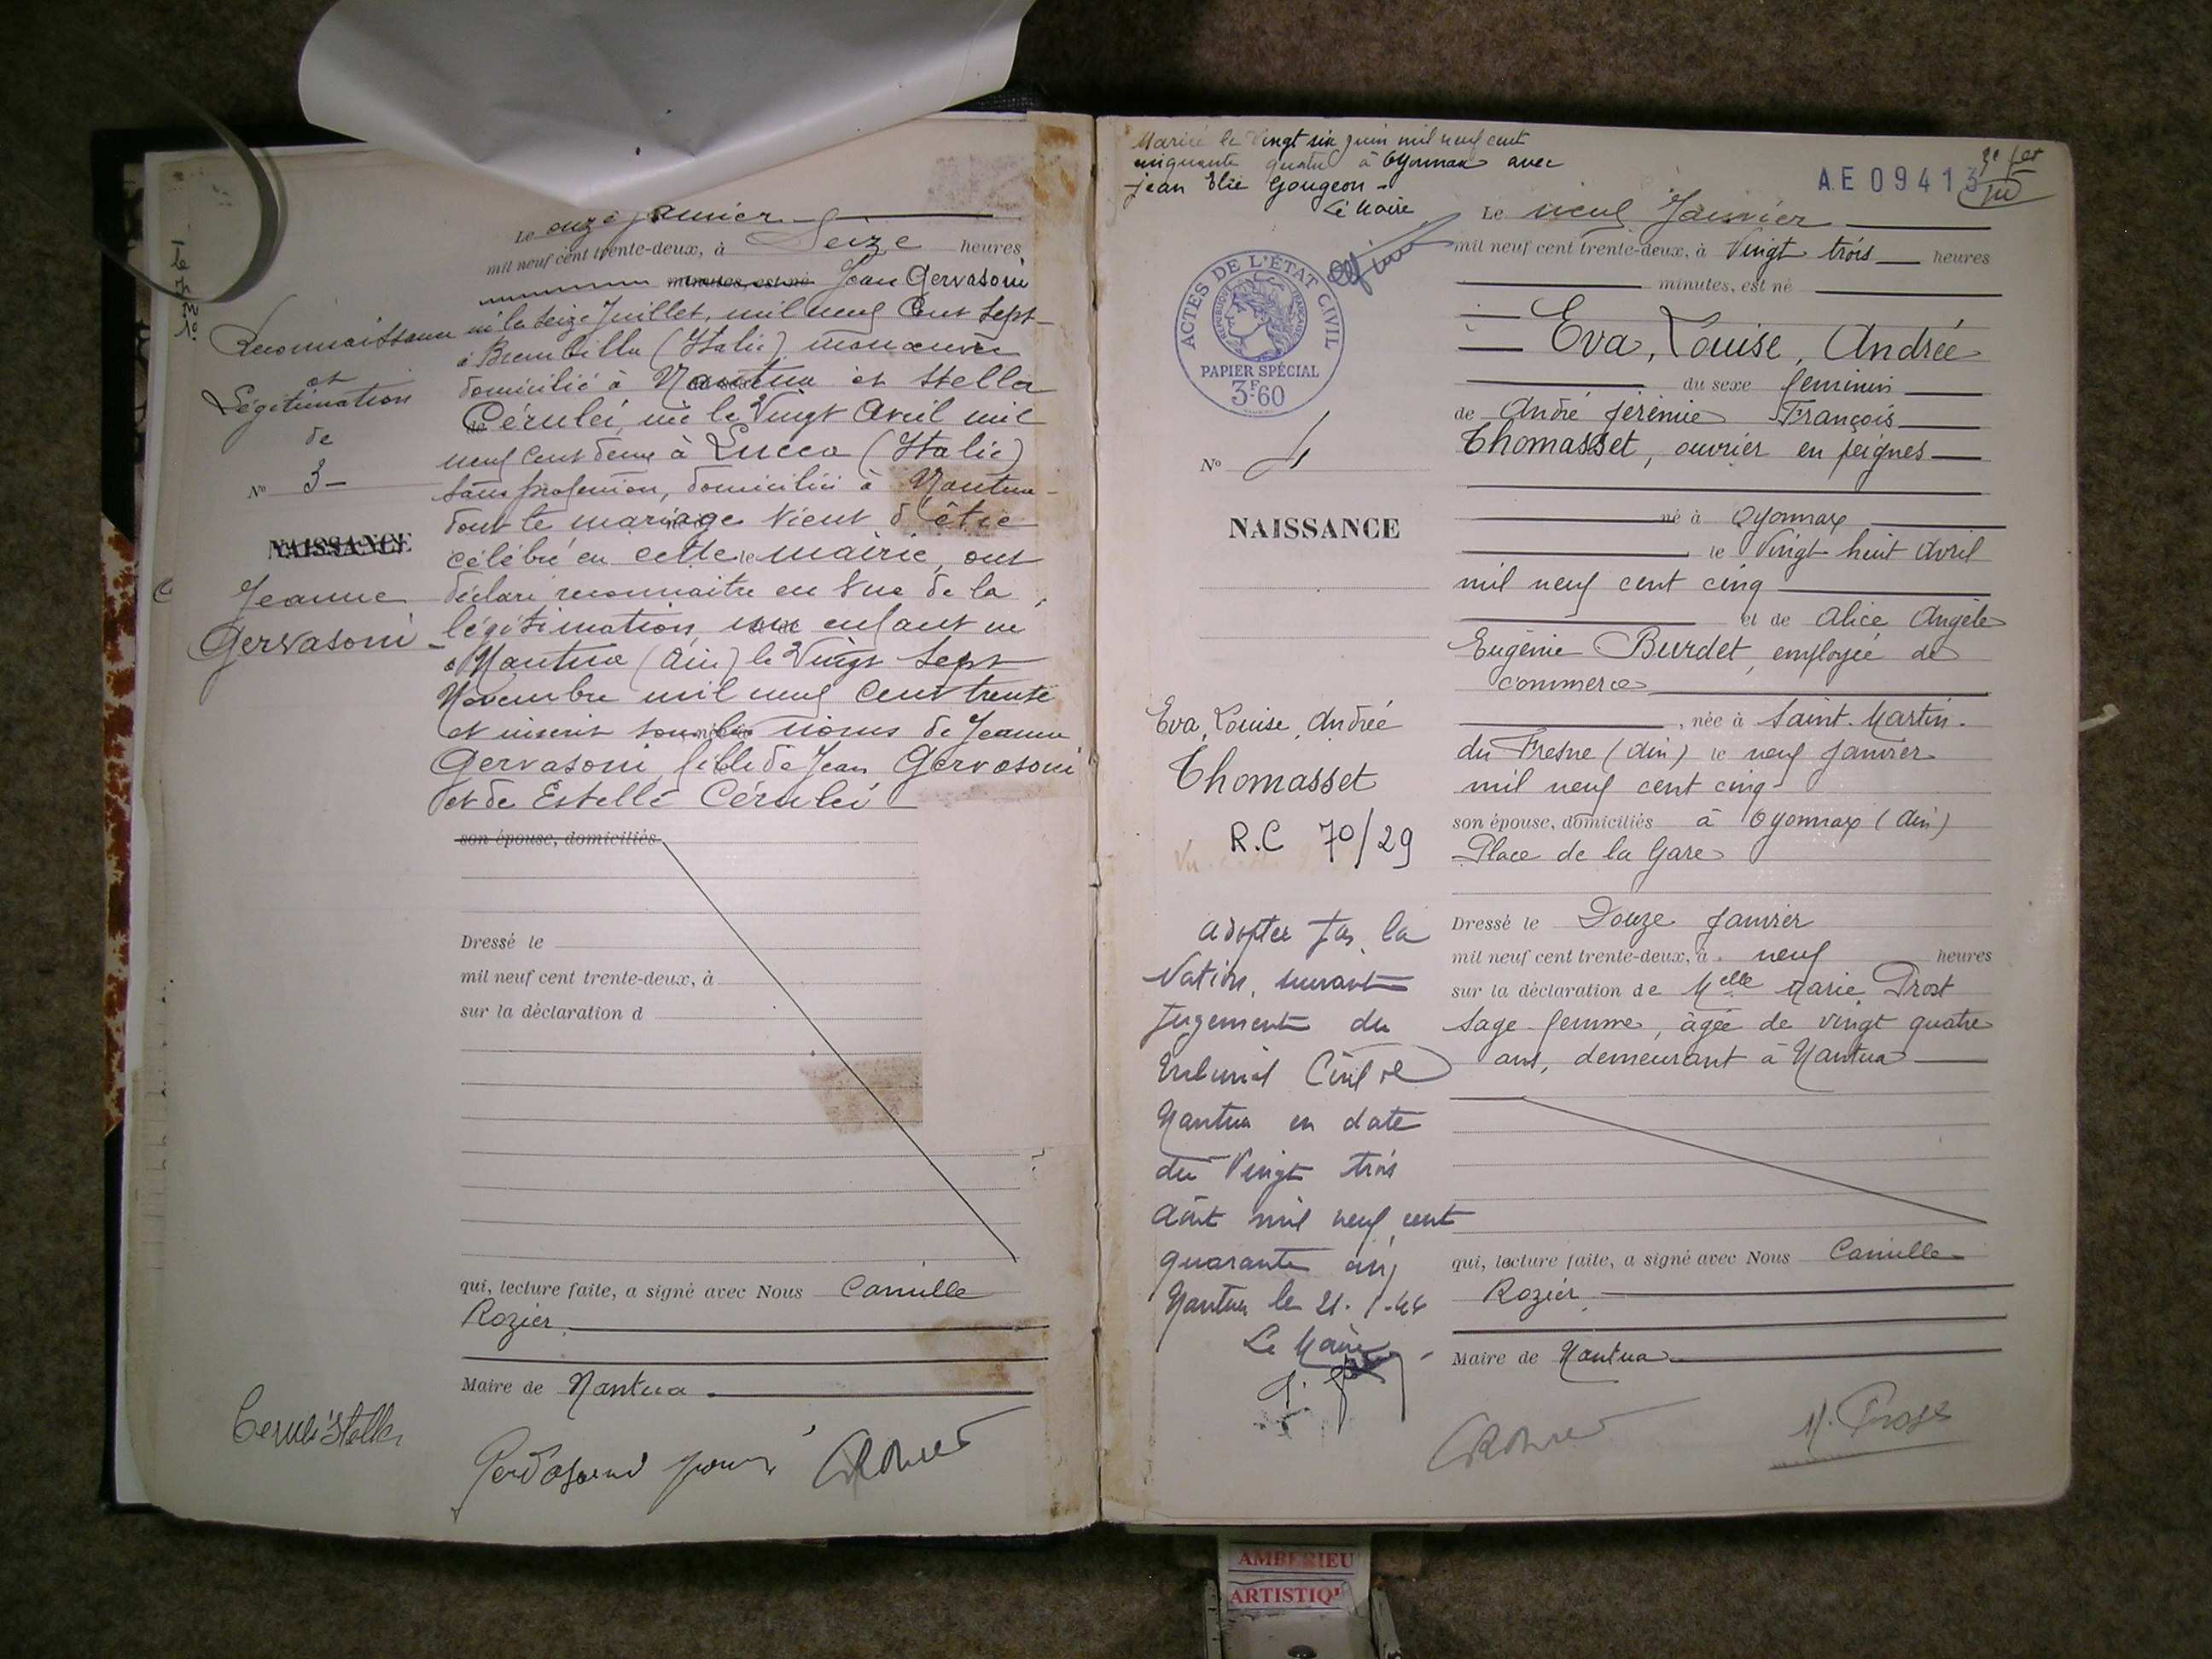 Le onze janvier
mil neuf cent trente-deux, à Seize heures
minutes, est né Jean Gervasoni
né le seize Juillet, mil neuf Cent Sept
à Brembilla (Italie) manœuvre
domicilié à Nantua et Stella
Cérulei, née le Vingt Avril mil
neuf Cent deux à Lucca (Italie)
sans profession, domiciliée à Nantua
dont le mariage vient d'être
célébré en cette mairie, ont
déclaré reconnaitre en vue de la
légitimation, un enfant né
à Nantua (Ain) le Vingt Sept
Novembre mil neuf Cent trente
et inscrit sous les noms de Jeanne
Gervasoni fille de Jean Gervasoni
et de Estelle Cérulei
son épouse, domiciliés
Reconnaissance
et
Légitimation
de
No 3
NAISSANCE
Jeanne
Gervasoni
Dressé le
mil neuf cent trente-deux, à
sur la déclaration d
qui, lecture faite, a signé avec Nous Camille
Rozier
Maire de Nantua
Mariée le Vingt six juin mil neuf cent
cinquante quatre à Oyonnax avec
Jean Elie Gougeon
Le Maire
AE 09413
ACTES DE L'ÉTAT CIVIL
RÉPUBLIQUE FRANÇAISE
PAPIER SPÉCIAL
3F60
No 4
NAISSANCE
Eva, Louise, Andrée
Thomasset
R.C 70/29
Adoptée par la
Nation, suivant
jugement du
Tribunal Civil de
Nantua en date
du Vingt trois
Août mil neuf cent
quarante cinq
Nantua le
Le Maire
Le neuf Janvier
mil neuf cent trente-deux, à Vingt trois heures
minutes, est né
Eva, Louise, Andrée
du sexe feminin
de André Jérémie François
Thomasset, ouvrier en peignes
né à Oyonnax
le Vingt huit Avril
mil neuf cent cinq
et de Alice Angèle
Eugénie Burdet, employée de
commerce
, née à Saint-Martin-
du Fresne (Ain) le neuf Janvier
mil neuf cent cinq
son épouse, domiciliés à Oyonnax (Ain)
Place de la Gare
Dressé le Douze Janvier
mil neuf cent trente-deux, à neuf heures
sur la déclaration de Melle Marie Prost
sage-femme, âgée de vingt quatre
ans, demeurant à Nantua
qui, lecture faite, a signé avec Nous Camille
Rozier
Maire de Nantua
M. Prost
AMBERIEU
ARTISTIQ